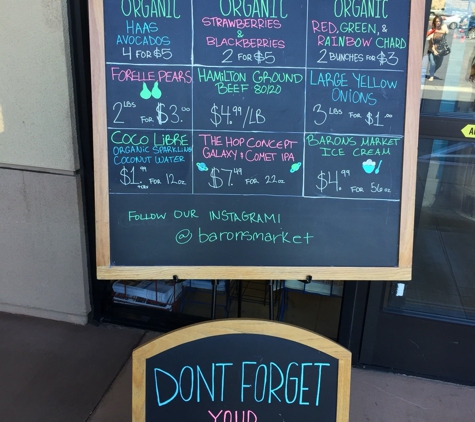 ORGANIC
HAAS
AVOCADOS
4 FOR $5
ORGANIC
STRAWBERRIES
&
BLACKBERRIES
2 FOR $5
ORGANIC
RED, GREEN, &
RAINBOW CHARD
2 BUNCHES FOR $3
FORELLE PEARS
2 LBS FOR $3.00
HAMILTON GROUND
BEEF 80/20
$4.99/LB
LARGE YELLOW
ONIONS
3 LBS FOR $1.00
COCO LIBRE
ORGANIC SPARKLING
COCONUT WATER
$1.99 FOR 12oz
THE HOP CONCEPT
GALAXY & COMET IPA
$7.49 FOR 22oz
BARONS MARKET
ICE CREAM
$4.99 FOR 56oz
FOLLOW OUR INSTAGRAM!
@baronsmarket
DONT FORGET
YOUR